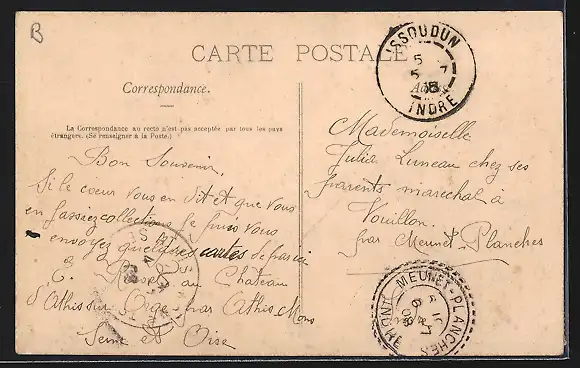 B
CARTE POSTALE
Correspondance.
La Correspondance au recto n'est pas acceptée par tous les pays
étrangers. (Se renseigner à la Poste.)
Bon Souvenir,
Si le cœur vous en dit et que vous
en fassiez collection, je puis vous
envoyer quelques cartes de par ici
au Château
d'Athis sur Orge par Athis-Mons
Seine et Oise
ISSOUDUN
5
5 7
08
INDRE
Mademoiselle
Julia Luneau chez ses
parents marechal à
Vouillon.
par Meunet-Planches
MEUNET-PLANCHES
INDRE